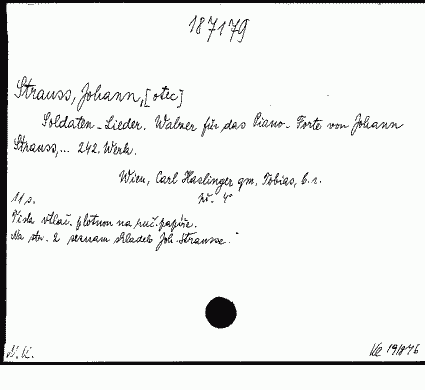 187179
Strauss, Johann, [otec]
Soldaten-Lieder. Walzer für das Piano-Forte von Johann
Strauss,... 242. Werk.
Wien, Carl Haslinger qm. Tobias, b.r.
11 s. 4°
Písla vtlač. plotnou na ruč. papíře.
Na str. 2 seznam skladeb Joh. Strausse.